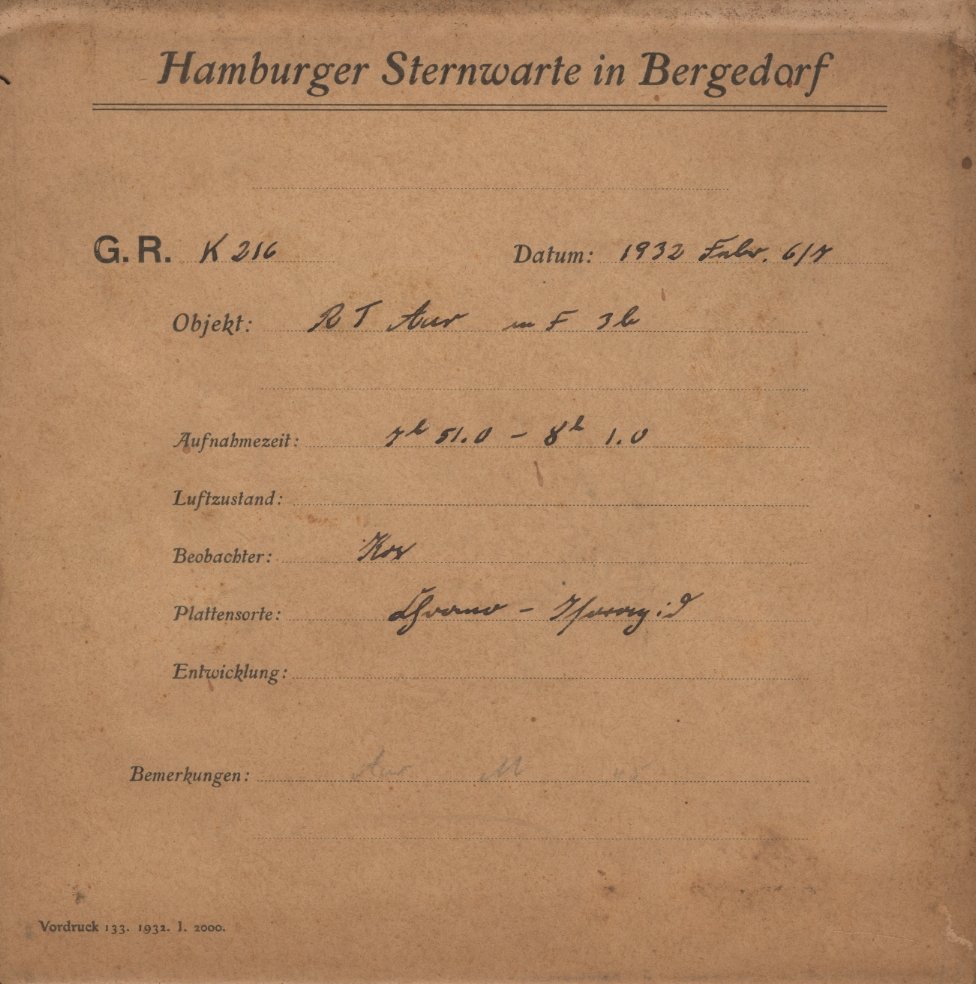 Hamburger Sternwarte in Bergedorf
G. R. K 216 Datum: 1932 Febr. 6/7
Objekt: RT Aur m F 3h
Aufnahmezeit: 7h 51.0 – 8h 1.0
Luftzustand:
Beobachter:
Plattensorte: Chromo - Isorapid
Entwicklung:
Bemerkungen: Aur M
Vordruck 133. 1932. I. 2000.